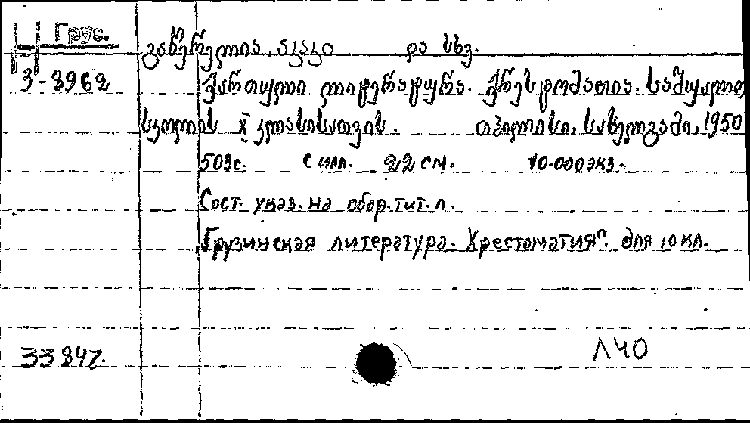 Н Груз.
გაწერელია, აკაკი და სხვ.
3-8962 ქართული ლიტერატურა. ქრესტომათია. საშუალო
სკოლის X კლასისათვის. თბილისი, სახელგამი, 1950
503с. с илл. 22 см. 10.000 экз.
Сост. указ. на обор. тит. л.
"Грузинская литература. Хрестоматия". для 10 кл.
33847. Л40